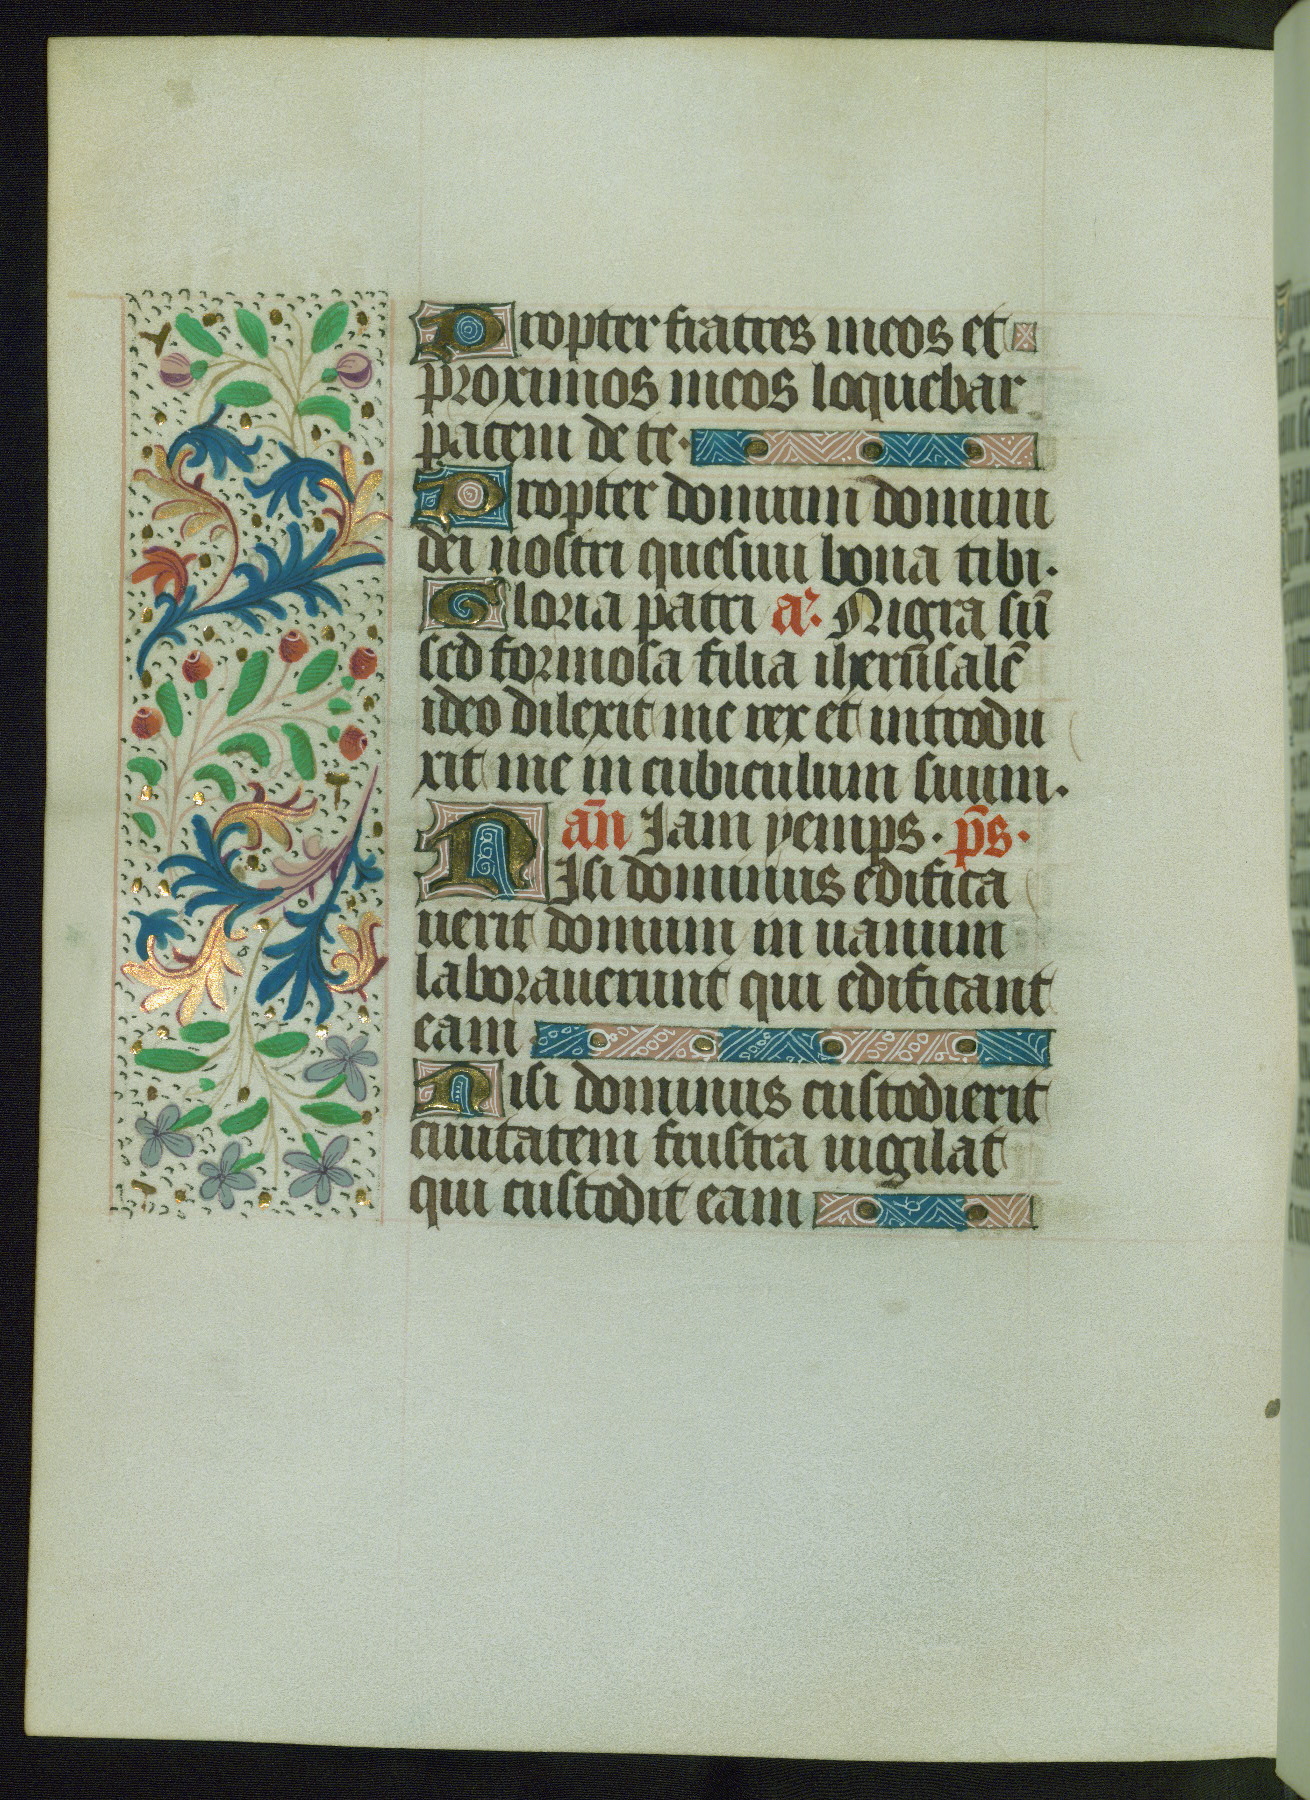 Propter fratres meos et
proximos meos loquebar
pacem de te.
Propter domum domini
dei nostri quesiui bona tibi.
Gloria patri a. Nigra sū
sed formosa filia iherūsalē
ideo dilexit me rex et introdu
xit me in cubiculum suum.
an̄ Jam yemps. p̄s.
NIsi dominus edifica
uerit domum in uanum
laborauerunt qui edificant
eam
Nisi dominus custodierit
ciuitatem frustra uigilat
qui custodit eam